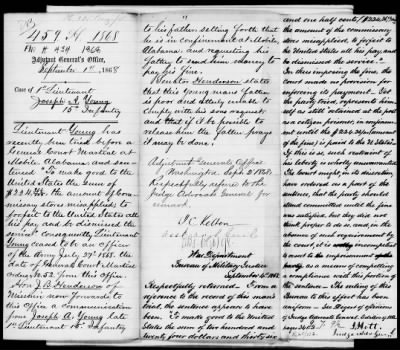 459 H 1868
Adjutant General's Office,
September 1st 1868
Case of 1st Lieutenant
Joseph A. Young
15th Infantry
Lieutenant Young has
recently been tried before a
General Court Martial at
Mobile Alabama and sen-
tenced "To make good to the
United States the sum of
the amount of Com-
missary stores misapplied; to
forfeit to the United States all
his pay and be dismissed the
service"; consequently Lieutenant
Young ceased to be an officer
of the Army July 27th 1868. the
date of General Court Martial
orders No 52 from this office.
Hon J. B. Henderson of
Missouri now forwards to
this Office a communication
from Joseph A. Young late
1st Lieutenant 15th Infantry
to his father, setting forth that
he is in confinement at Mobile,
Alabama and requesting his
Father to send him money to
pay his fine.
Senator Henderson states
that this young man's father
is poor and utterly unable to
comply with his sons request;
and that if it be possible to
release him the Father prays
it may be done.
Adjutant General's Office
Washington Sept 2 1868.
Respectfully referred to the
Judge Advocate General for
remark.
J C Kelton
War Department
Bureau of Military Justice
September 4th 1868.
Respectfully returned. From a
reference to the record of this man's
trial, the sentence appears to have
been. To make good to the United
States the sum of two hundred and
twenty four dollars and thirty six
and one half cents,
the amount of the commissary
stores misapplied, to forfeit to
the United States all his pay, and
be dismissed the service."
In thus imposing the fine, the
Court made no provision for
enforcing its payment. Yet
the party tried, represents him-
self as still retained at his post
as a citizen prisoner, in confine-
ment until the
of the fine) is paid to the U. States.
If this is so, such restraint of
his liberty is wholly unwarranted.
The Court might in its discretion
have ordered as a part of the
sentence, that the party should
stand committed until the fine
was satisfied, but they did not
think proper to do so, and in the
absence of such requirement of
the court, it is not competent
to resort to the imprisonment of the
party as a means of compelling
a compliance with this portion of
the sentence. The ruling of this
bureau to this effect has been
uniform
J. Holt
Judge Adv. Gen'l.